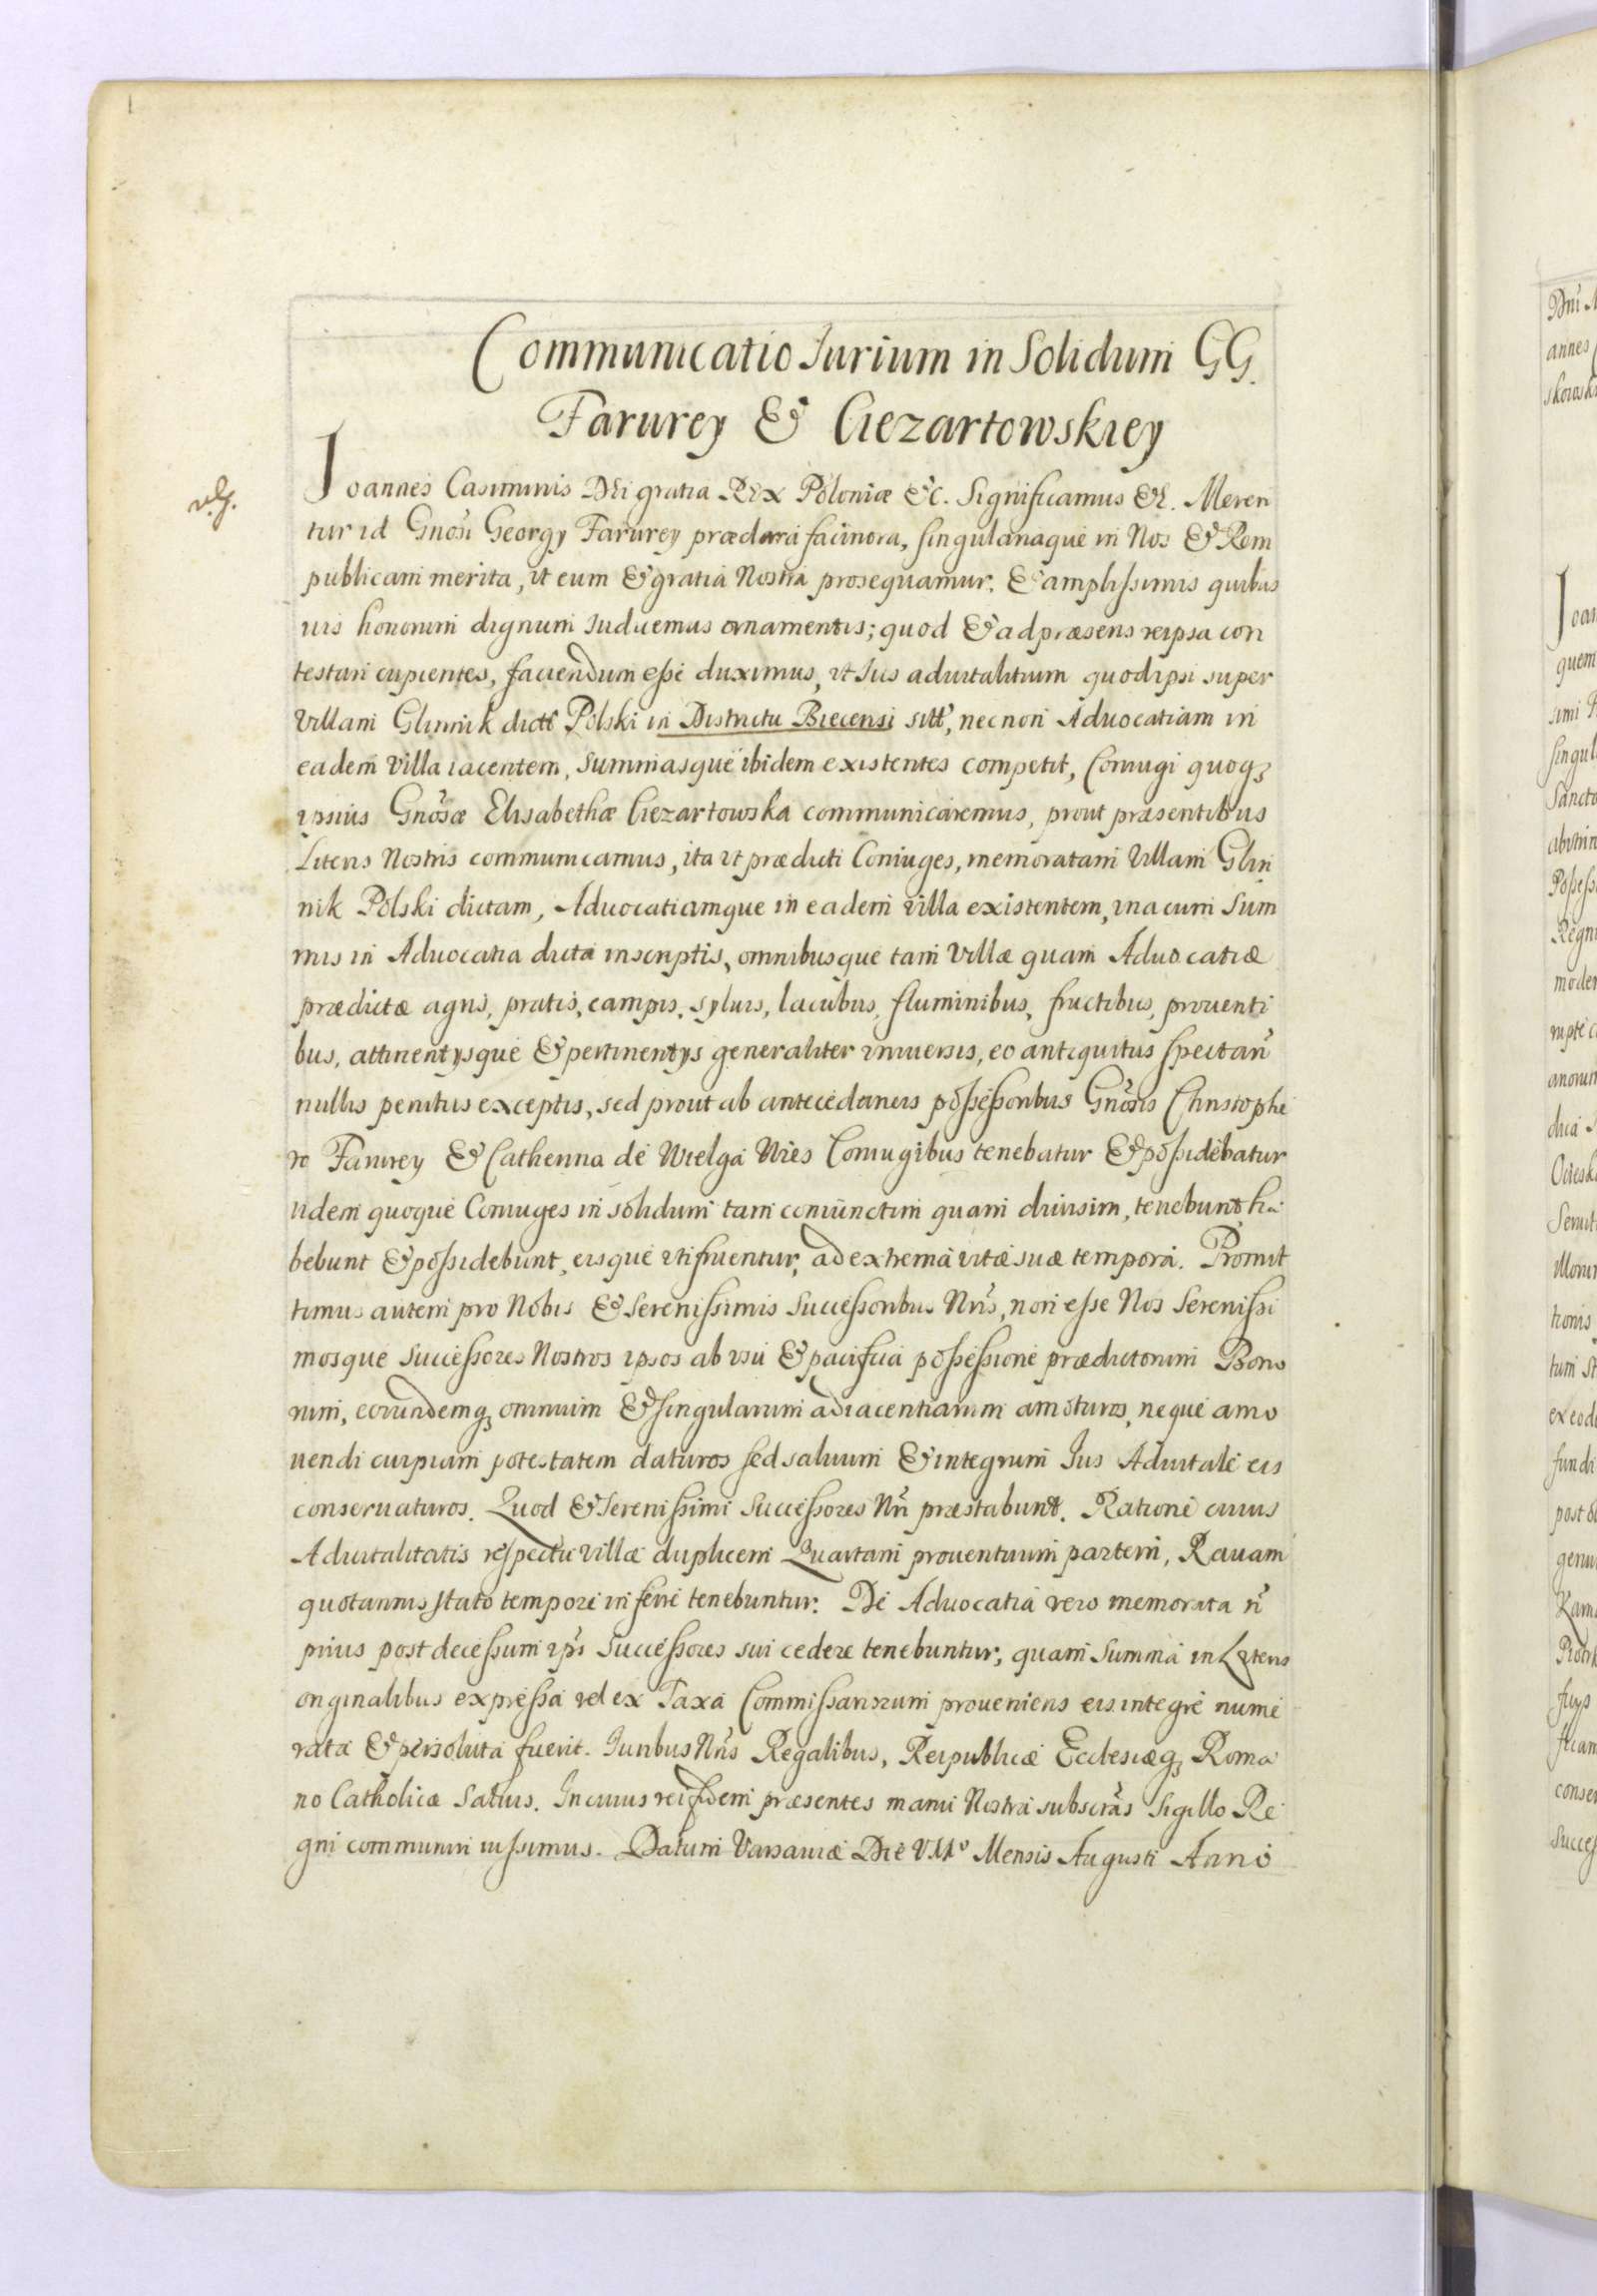 Communicatio Iurium in Solidum GG.
Farurey & Ciezartowskiey
Ioannes Casimirus Dei gratia Rex Poloniæ &c. Significamus &c. Meren
tur id Gnosi Georgy Farurey præclara facinora, singulariaque in Nos & Rem
publicam merita, ut eum & gratia Nostra prosequamur. & amplissimis quibus
uis honorum dignum Iudicemus ornamentis; quod & ad præsens reipsa con
testari cupientes, faciendum esse duximus, ut Ius aduitalitium quod ipsi super
Villam Glinnik dictt Polski in Districtu Biecensi sitt, necnon Aduocatiam in
eadem Villa iacentem, Summasque ibidem existentes competit, Coniugi quoq3
ipsius Gnosæ Elisabethæ Ciezartowska communicaremus, prout præsentibus
Literis Nostris communicamus, ita ut prædicti Coniuges, memoratam Villam Glin
nik Polski dictam, Aduocatiamque in eadem villa existentem, una cum Sum
mis in Aduocatia dicta inscriptis, omnibusque tam Villæ quam Aduocatiæ
prædictæ agris, pratis, campis, syluis, lacubus, fluminibus, fructibus, prouenti
bus, attinentysque & pertinentys generaliter uniuersis, eo antiquitus spectan
nullis penitus exceptis, sed prout ab antecedaneis possessoribus Gnosis Christophe
ro Farurey & Catherina de Wielga Wies Coniugibus tenebatur & possidebatur
iidem quoque Coniuges in solidum tam coniunctim quam diuisim, tenebunt ha
bebunt & possidebunt, eisque utifruentur, ad extrema vitæ suæ tempora. Promit
timus autem pro Nobis & Serenissimis Successoribus Nris, non esse Nos Serenissi
mosque Successores Nostros ipsos ab usu & pacifica possessione prædictorum Bono
rum, eorundemq3 omnium & singularum adiacentiarum amoturos, neque amo
uendi cuipiam potestatem daturos sed saluum & integrum Ius Aduitale eis
conseruaturos. Quod & Serenissimi Successores Nri præstabunt. Ratione cuius
Aduitalitatis respectu villæ duplicem Quartam prouentuum partem, Rauam
quotannis stato tempore inferre tenebuntur. De Aduocatia vero memorata n
prius post decessum ips Successores sui cedere tenebuntur, quam Summa in Literis
originalibus expressa vel ex Taxa Commissariorum proueniens eis integre nume
rata & persoluta fuerit. Iuribus Nris Regalibus, Reipublicæ Ecclesiæq3 Roma
no Catholicæ Saluis. In cuius rei fidem præsentes manu Nostra subscras Sigillo Re
gni communiri iussimus. Datum Varsauiæ Die VIIo Mensis Augusti Anno